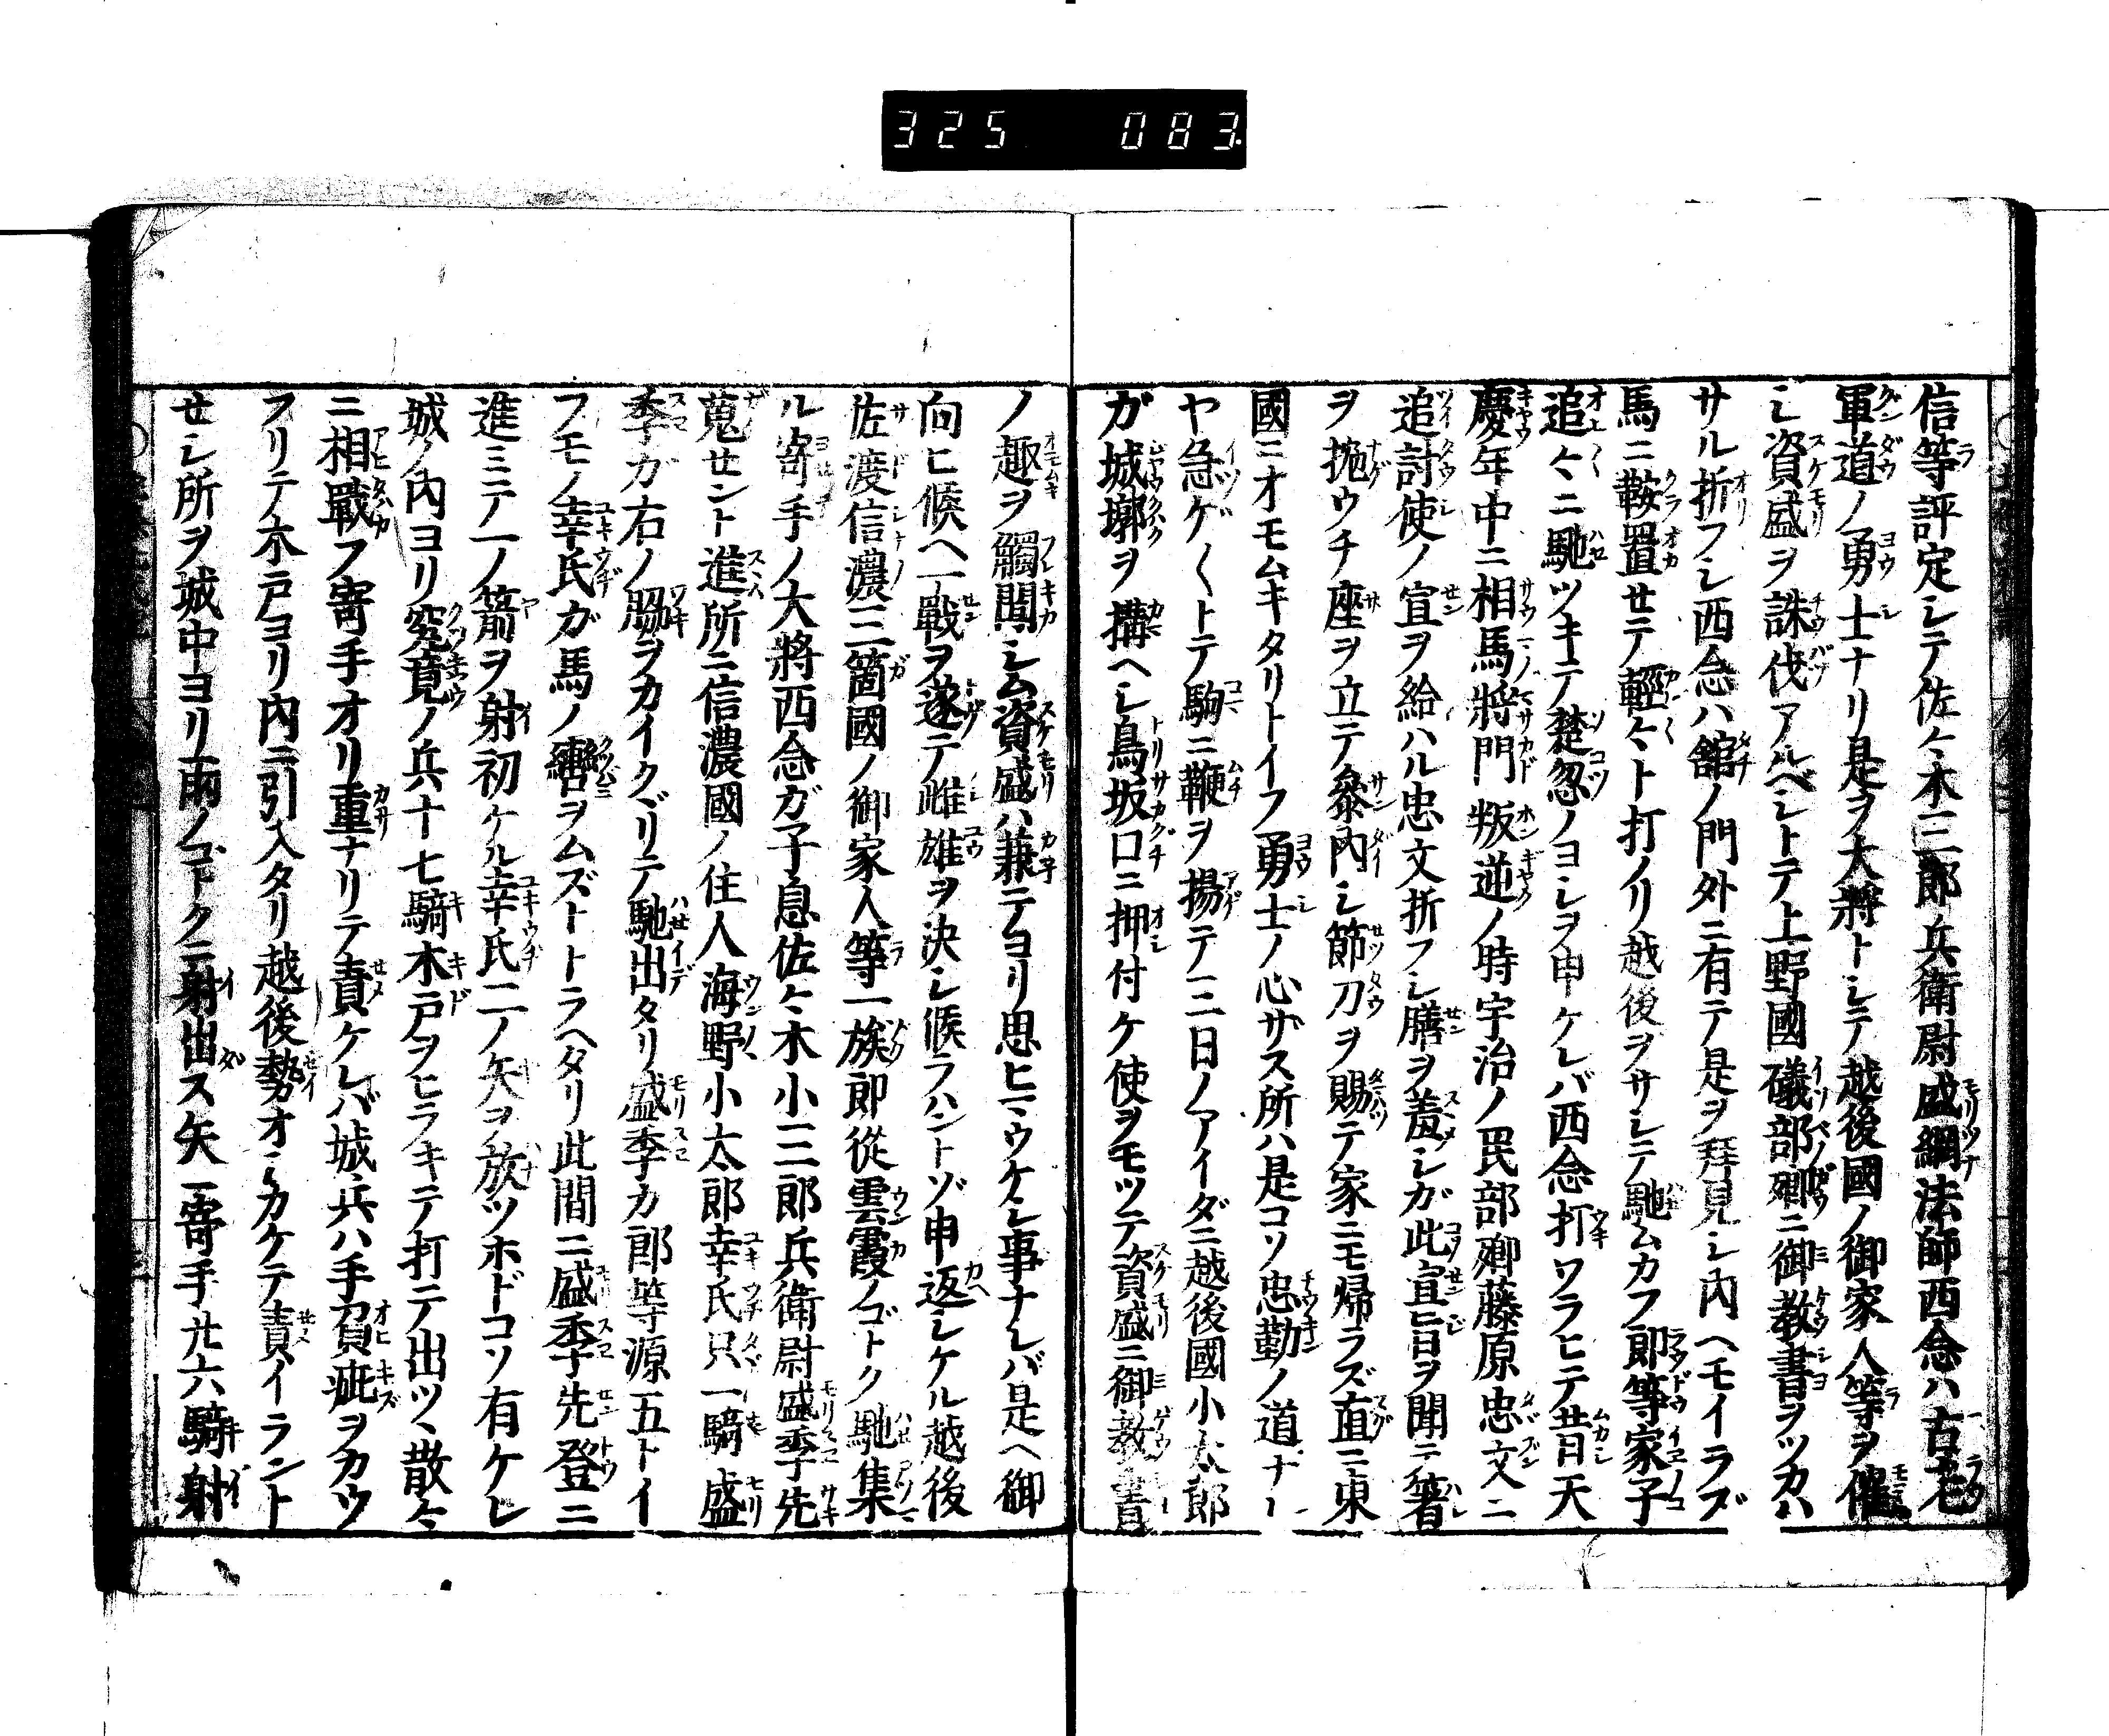 325 083.
信等評定シテ佐々木三郎兵衛尉盛綱法師西念ハ古老
軍道ノ勇士ナリ是ヲ大將トシテ越後國ノ御家人等ヲ催
シ資盛ヲ誅伐アルベシトテ上野國礒部郷ニ御教書ヲツカハ
サル折フシ西念ハ舘ノ門外ニ有テ是ヲ拜見シ內ヘモイラズ
馬ニ鞍置セテ輕々ト打ノリ越後ヲサシテ馳ムカフ郎等家子
追々ニ馳ツキテ楚忽ノヨシヲ申ケレバ西念打ワラヒテ昔天
慶年中ニ相馬將門叛逆ノ時宇治ノ民部卿藤原忠文ニ
追討使ノ宣ヲ給ハル忠文折フシ膳ヲ羞シガ此宣旨ヲ聞テ箸
ヲ抛ウチ座ヲ立テ參內シ節刀ヲ賜テ家ニモ帰ラズ直ニ東
國ニオモムキタリトイフ勇士ノ心サス所ハ是コソ忠勤ノ道ナレ
ヤ急ゲ〱トテ駒ニ鞭ヲ揚テ三日ノアイダニ越後國小太郎
ガ城墎ヲ搆ヘシ鳥坂口ニ押付ケ使ヲモツテ資盛ニ御教書
ノ趣ヲ觸聞シム資盛ハ兼テヨリ思ヒマウケシ事ナレバ是ヘ御
向ヒ候ヘ一戰ヲ遂テ雌雄ヲ決シ候ラハントゾ申返シケル越後
佐渡信濃三箇國ノ御家人等一族郎從雲霞ノゴトク馳集
ル寄手ノ大將西念ガ子息佐々木小三郎兵衛尉盛季先
蒐セント進所ニ信濃國ノ住人海野小太郎幸氏只一騎盛
季ガ右ノ脇ヲカイクヾリテ馳出タリ盛季カ郎等源五トイ
フモノ幸氏ガ馬ノ轡ヲムズトトラヘタリ此間ニ盛季先登ニ
進ミテ一ノ箭ヲ射初ケル幸氏二ノ矢ヲ放ツホドコソ有ケレ
城ノ內ヨリ究竟ノ兵十七騎木戸ヲヒラキテ打テ出ツヽ散々
ニ相戰フ寄手オリ重ナリテ責ケレバ城兵ハ手負疵ヲカウ
フリテ木戸ヨリ內ニ引入タリ越後勢オシカケテ責イラント
セシ所ヲ城中ヨリ雨ノゴトクニ射出ス矢ニ寄手廿六騎射